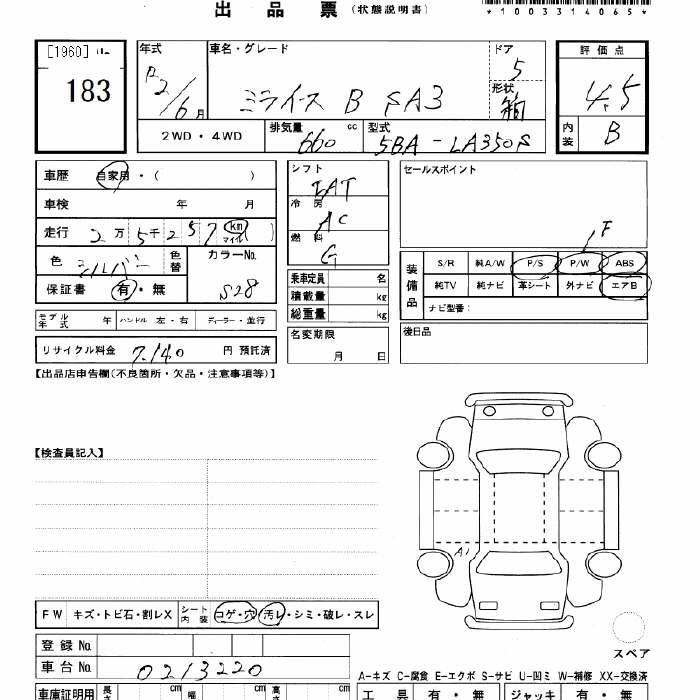 出品票（状態説明書）
*1003314065*
[1960]
183
年式
R2/6月
車名・グレード
ミライース B SA3
ドア
5
形状
箱
評価点
4.5
内装
B
2WD・4WD
排気量
660 cc
型式
5BA-LA350S
車歴 自家用・（ ）
車検 年 月
走行 2万5千257 km マイル
色 シルバー
色替
カラーNo.
S28
保証書 有・無
シフト
IAT
冷房
AC
燃料
G
乗車定員 名
積載量 kg
総重量 kg
セールスポイント
F
装備品
S/R 純A/W P/S P/W ABS
純TV 純ナビ 革シート 外ナビ エアB
ナビ型番：
モデル年式 年 ハンドル 左・右 ディーラー・並行
名変期限
月 日
後日品
リサイクル料金 7,140 円 預託済
【出品店申告欄(不良箇所・欠品・注意事項等)】
【検査員記入】
A1
FW キズ・トビ石・割レX シート内装 コゲ・穴・汚レ・シミ・破レ・スレ
スペア
登録No.
車台No. 0213220
A-キズ C-腐食 E-エクボ S-サビ U-凹ミ W-補修 XX-交換済
車庫証明用 長さ cm 幅 cm 高さ cm
工具 有・無 ジャッキ 有・無